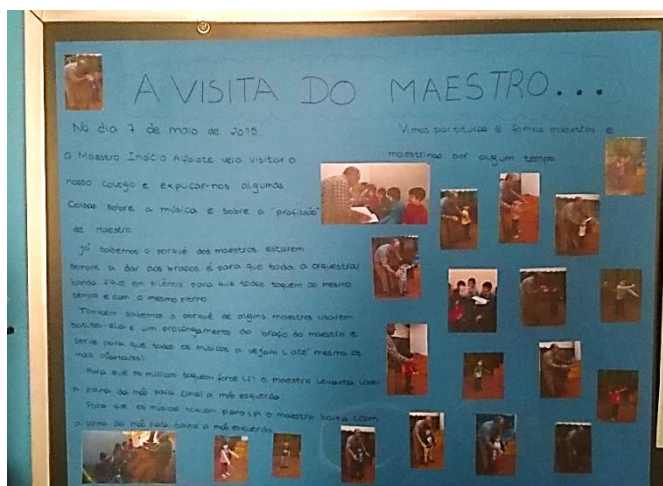 A VISITA DO MAESTRO...
No dia 7 de maio de 2015.
O Maestro Inácio Alfaiate veio visitar o
nosso colégio e explicar-nos algumas
coisas sobre a música e sobre a "profissão"
de Maestro.
Já sabemos o porquê dos maestros estarem
sempre a dar aos braços é para que toda a orquestra/
banda em silêncio para que todos toquem ao mesmo
tempo e com o mesmo ritmo
Também sabemos o porquê de alguns maestros usarem
batuta: ela é um prolongamento do braço do maestro e
serve para que todos os músicos a vejam (até mesmo os
mais afastados)
Para que os músicos toquem forte (f) o maestro levanta (com
a palma da mão para cima) a mão esquerda
Para que os músicos toquem piano (p) o maestro baixa (com
a palma da mão para baixo) a mão esquerda.
Vimos partituras e fomos maestros e
maestrinas por algum tempo